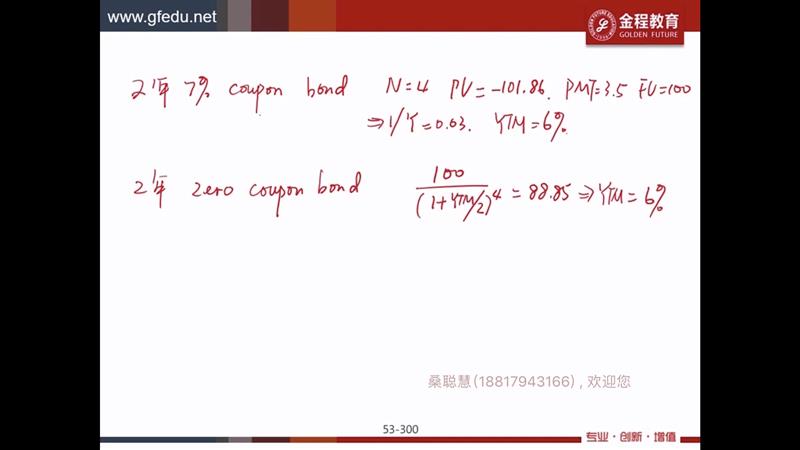 www.gfedu.net
金程教育
GOLDEN FUTURE
2年 7% coupon bond N=4 PV=-101.86. PMT=3.5 FV=100
⇒ I/Y=0.03. YTM=6%.
2年 zero coupon bond 100/(1+YTM/2)^4 = 88.85 ⇒ YTM=6%
桑聪慧(18817943166) , 欢迎您
53-300
专业·创新·增值